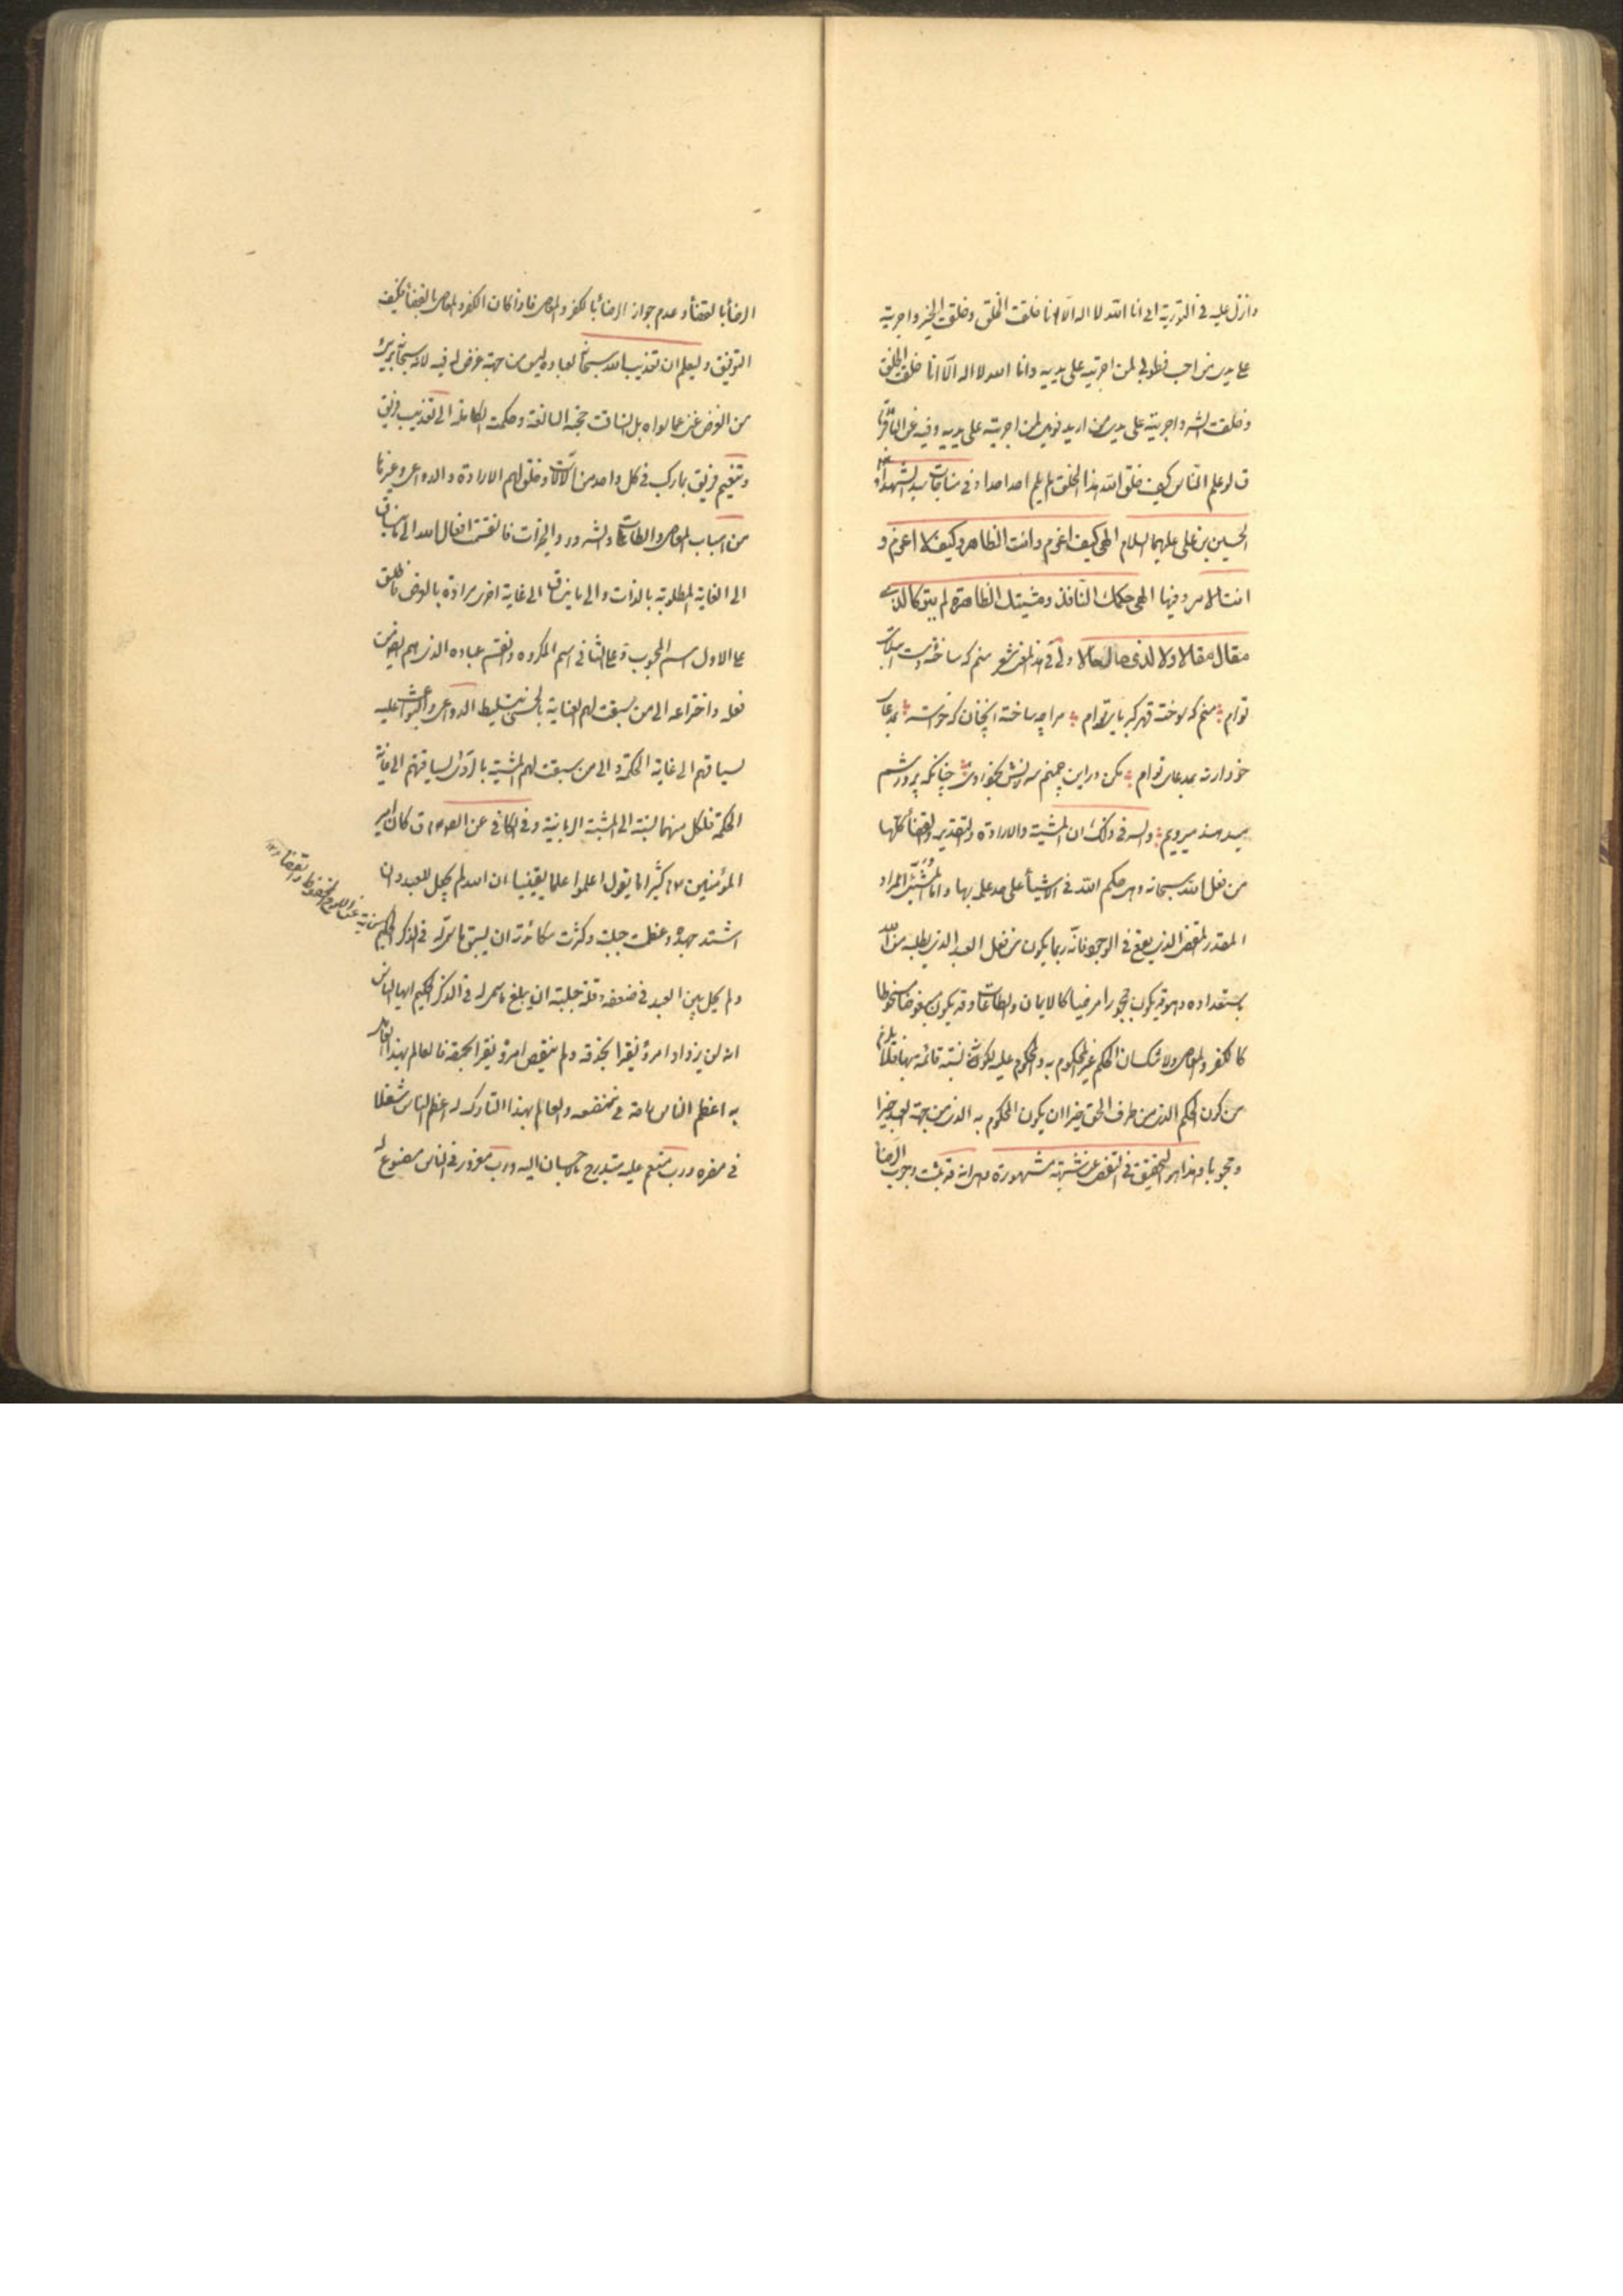 وانزل عليه في التورية اني انا الله لا اله الا انا خلقت الخلق وخلقت الخير واجريته
على يدي من احب فطوبى لمن اجريته على يديه وانا الله لا اله الا انا خلقت الخلق
وخلقت الشر واجريته على يدي من اريد فويل لمن اجريته على يديه وفيه عن الباقر
ق لو علم الناس كيف خلق الله هذا الخلق لم يلم احد احدا وفي مناجات سيد الشهداء
الحسين بن علي عليهما السلام الهي كيف اعزم وانت القاهر وكيف لا اعزم و
انت الامر وفيها الهي حكمك النافذ ومشيتك القاهرة لم يتركا لذي
مقال مقالا ولا لذي حال حالا ولي في هذا المعنى شعر منم كه ساخته دست
توام منم كه سوخته قهر كبرياى توام مرا چه ساخته انچنان كه خواسته بمدعاى
خودار نه بمدعاى توام مكن در اين چمنم سرزنش بخودرويى چنانكه پرورشم
ميدهند ميرويم والسر في ذلك ان المشية والارادة والتقدير والقضأ كلها
من فعل الله سبحانه وهى حكم الله في الاشيأ على حد علمه بها واما المشيئ المراد
المقدر المقضى الذي يقع في الوجود فانه ربما يكون من فعل العبد الذي يطلبه من الله
باستعداده وهو قد يكون محبوبا مرضيا كالايمان والطاعات وقد يكون مبغوضا مسخوطا
كالكفر والمعاصى ولا شك ان الحكم غير المحكوم به والمحكوم عليه لكونه نسبة قائمة بهما فلا يلزم
من كون الحكم الذي من طرف الحق خيرا ان يكون المحكوم به الذي من جهة العبد خيرا
ومحبوبا وهذا هو التحقيق في التفصى عن شبهة مشهورة وهى انه قد ثبت وجوب الرضا
الرضأ بالقضأ وعدم جواز الرضأ بالكفر والمعاصى فاذا كان الكفر والمعاصى بالقضأ فكيف
التوفيق وليعلم ان تعذيب الله سبحانه لعباده ليس من جهة غرض له فيه لانه سبحانه برئ
من الغرض غنى عما سواه بل انساقت حجته البالغة وحكمته الكاملة الى تعذيب فريق
وتنعيم فريق بما ركب في كل واحد من الآلات وخلق لهم الارادة والدواعى وغيرها
من اسباب المعاصى والطاعات والشرور والخيرات فانقسمت افعال الله الى ما ينساق
الى الغاية المطلوبة بالذات والى ما ينساق الى غاية اخرى مرادة بالعرض فاطلق
على الاول اسم المحبوب وعلى الثاني اسم المكروه وانقسم عباده الذين هم ايضا من
فعله واختراعه الى من سبقت لهم العناية بالحسنى بتسليط الدواعى والبواعث عليه
لسياقهم الى غاية الحكمة والى من سبقت لهم المشية بالردى لسياقتهم الى غاية
الحكمة فلكل منهما نسبة الى المشية الربانية وفي الكافي عن الصادق ق كان امير
المؤمنين كثيرا ما يقول اعلموا علما يقينا ان الله لم يجعل للعبد وان
اشتد جهده وعظمت حيلته وكثرت مكائدته ان يسبق ما سمى له في الذكر الحكيم
ولم يحل بين العبد في ضعفه وقلة حيلته ان يبلغ ما سمى له في الذكر الحكيم ايها الناس
انه لن يزداد امرؤ نقيرا بحذقه ولم ينتقص امرؤ نقيرا لحمقه فالعالم بهذا العامل
به اعظم الناس راحة في منفعته والعالم بهذا التارك له اعظم الناس شغلا
في مضرته ورب منعم عليه مستدرج بالاحسان اليه ورب مغرور في الناس مصنوع له
كناية عن اللوح المحفوظ والقضا